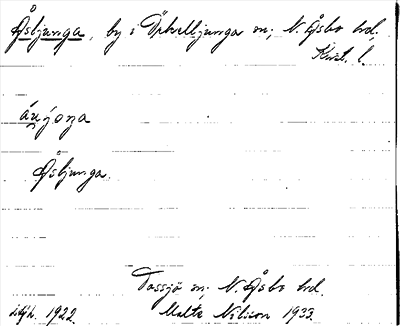 Åsljunga, by i Örkelljunga sn; N. Åsbo hd,
Krist. l.
Åsljunga.
Tossjö sn; N. Åsbo hd.
1922. Malte Nilsson 1933.